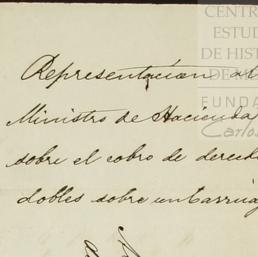 CENTR
ESTUD
DE HIST
DE
FUNDA
Carlos
Representacion al
Ministro de Hacienda
sobre el cobro de derech
dobles sobre un Carruag